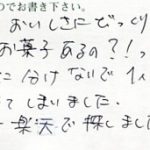 のでお書き下さい。
おいしさにびっくり
お菓子あるの?!っ
に分けないで1人
てしまいました.
楽天で探しました